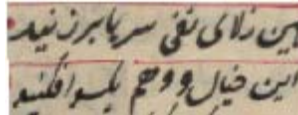 هین ز لای نفی سر بر زنید
این خیال و وهم یکسو افکنید